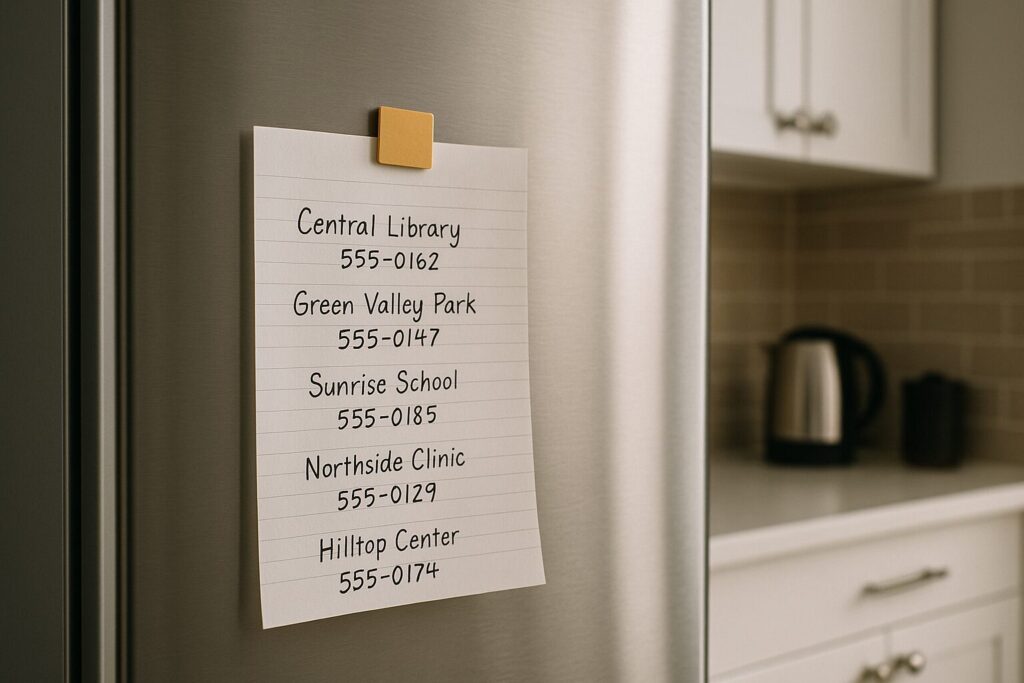 Central Library
555-0162
Green Valley Park
555-0147
Sunrise School
555-0185
Northside Clinic
555-0129
Hilltop Center
555-0174